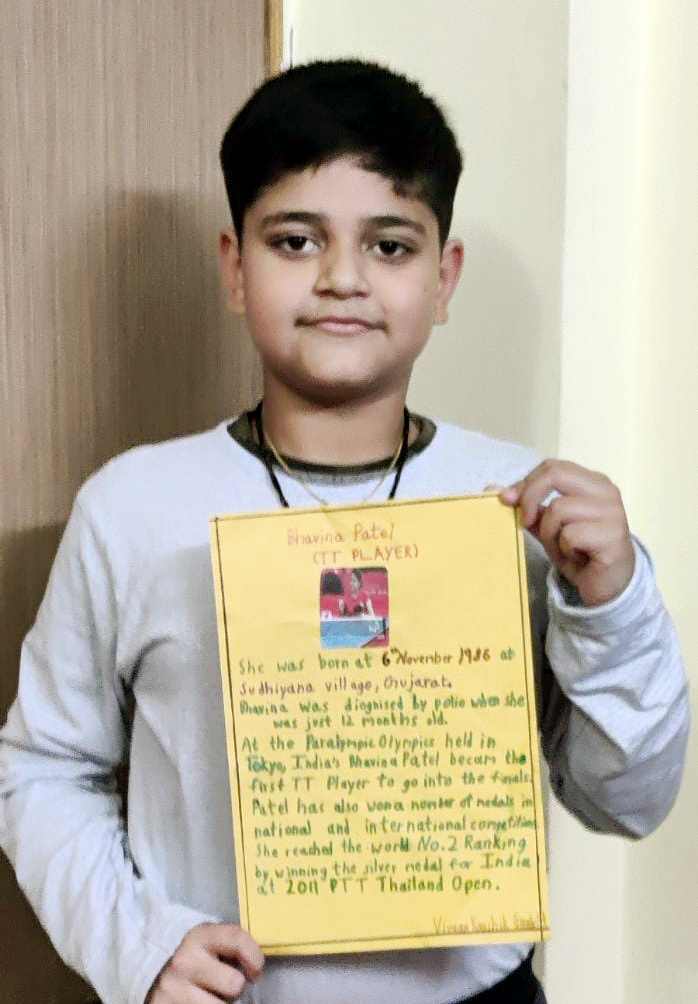 Bhavina Patel
(TT PLAYER)
She was born at 6th November 1986 at
Sudhiyana village, Gujarat.
Bhavina was diagnised by polio when she
was just 12 months old.
At the Paralympic Olympics held in
Tokyo, India's Bhavina Patel becam the
first TT Player to go into the finals.
Patel has also won a number of medals in
national and international competition
She reached the world No.2 Ranking
by winning the silver medal for India
at 2011 PTT Thailand Open.
Kaushik